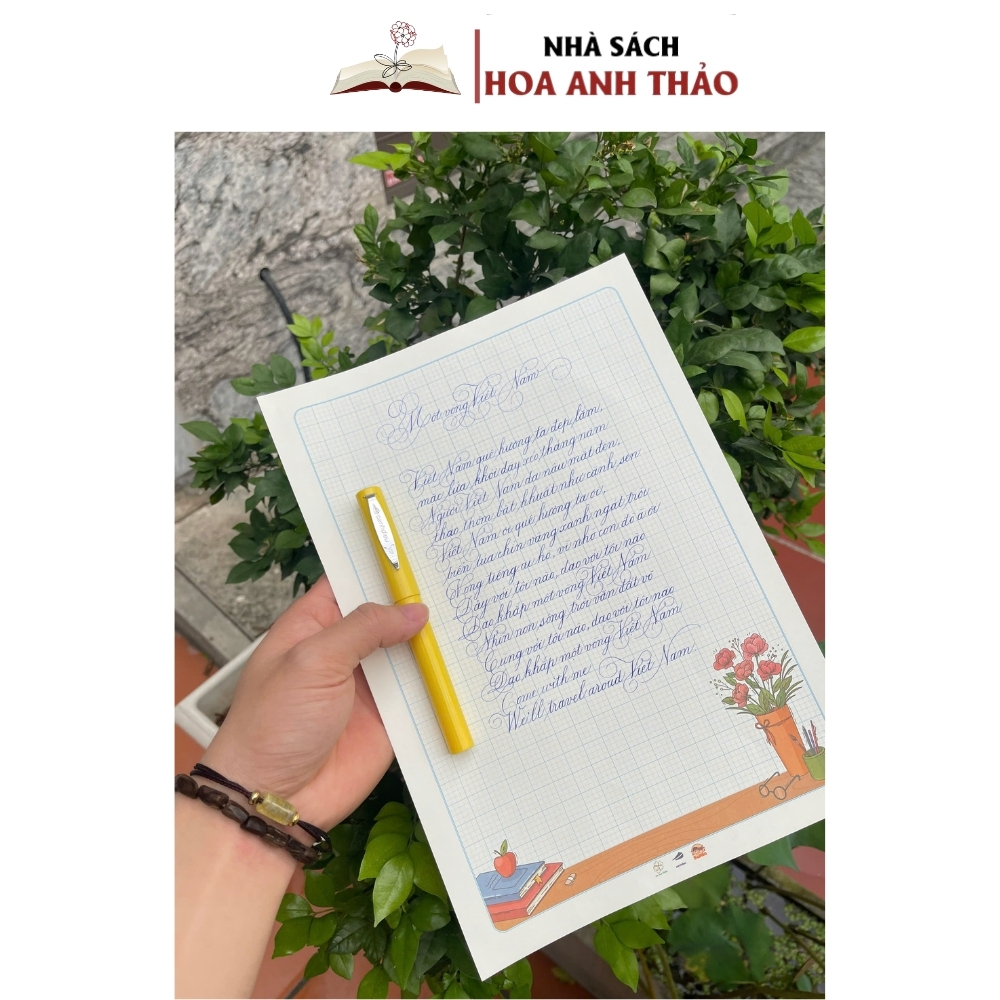 NHÀ SÁCH
HOA ANH THẢO
Một vòng Việt Nam
Việt Nam quê hương ta đẹp lắm,
mác lửa khói dày xéo tháng năm
Người Việt Nam da nâu mắt đen,
thảo thơm bất khuất như cánh sen
Việt Nam ơi quê hương ta ơi,
biển lúa chín vàng xanh ngát trời
Vọng tiếng ai hò, ví nhớ em đò ả ơi
Đây với tôi nào, dạo với tôi nào
Dạo khắp một vòng Việt Nam
Nhìn non, sông, trời vân đất võ
Cùng với tôi nào, dạo với tôi nào
Dạo khắp một vòng Việt Nam
Come with me
We'll travel aroud Việt Nam.